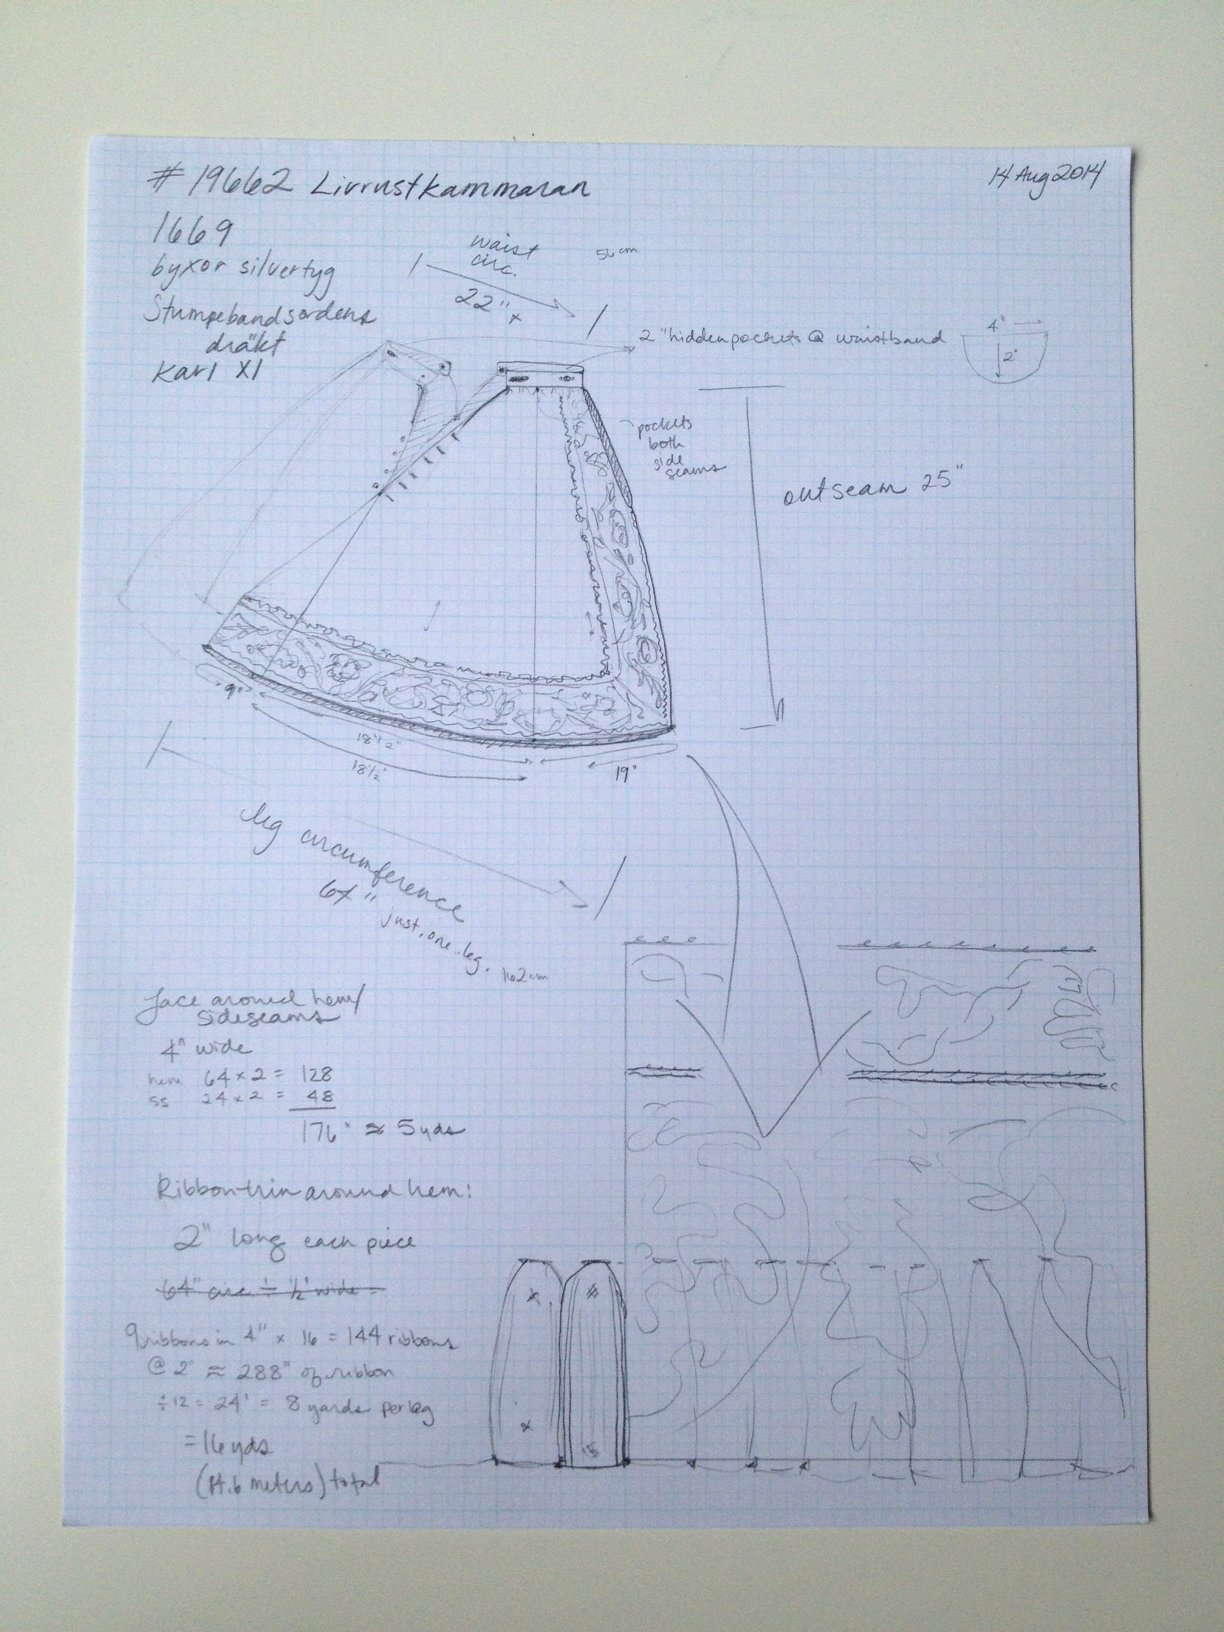 # 19662 Livrustkammaran
14 Aug 2014
1669
byxor silvertyg
Stumpebandsordens
dräkt
Karl XI
waist
circ.
22"
56 cm
2" hidden pockets @ waistband
4"
2"
pockets
both
side
seams
outseam 25"
9"
18 1/2"
18 1/2"
19"
leg circumference
64"
just one leg.
162 cm
lace around hem/
sideseams
4" wide
hem 64 x 2 = 128
ss 24 x 2 = 48
176" ≈ 5 yds
Ribbon trim around hem:
2" long each piece
64" circ ÷ 1/2" wide =
9 ribbons in 4" x 16 = 144 ribbons
@ 2" ≈ 288" of ribbon
÷ 12 = 24' = 8 yards per leg
= 16 yds
(14.6 meters) total